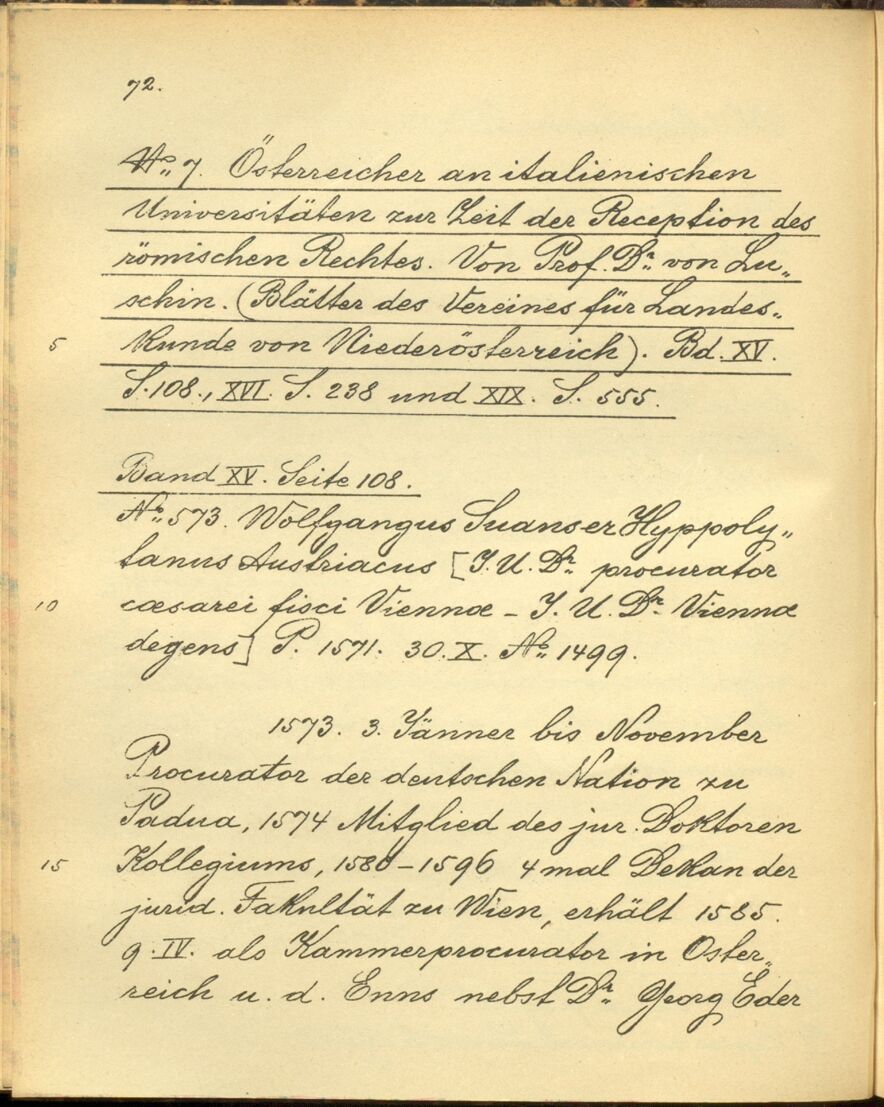 72.
No. 7. Österreicher an italienischen
Universitäten zur Zeit der Reception des
römischen Rechtes. Von Prof. Dr. von Lu„
schin. (Blätter des Vereines für Landes„
5 kunde von Niederösterreich). Bd. XV.
S. 108., XVI. S. 238 und XIX. S. 555.
Band XV. Seite 108.
No. 573. Wolfgangus Suanser Hyppoly„
tanus Austriacus [J. U. Dr. procurator
10 cæsarei fisci Viennæ – J. U. Dr. Viennæ
degens] P. 1571. 30. X. No. 1499.
1573. 3. Jänner bis November
Procurator der deutschen Nation zu
Padua, 1574 Mitglied des jur. Doktoren
15 Kollegiums, 1580–1596 4 mal Dekan der
jurid. Fakultät zu Wien, erhält 1585.
9. IV. als Kammerprocurator in Öster„
reich u. d. Enns nebst Dr. Georg Eder